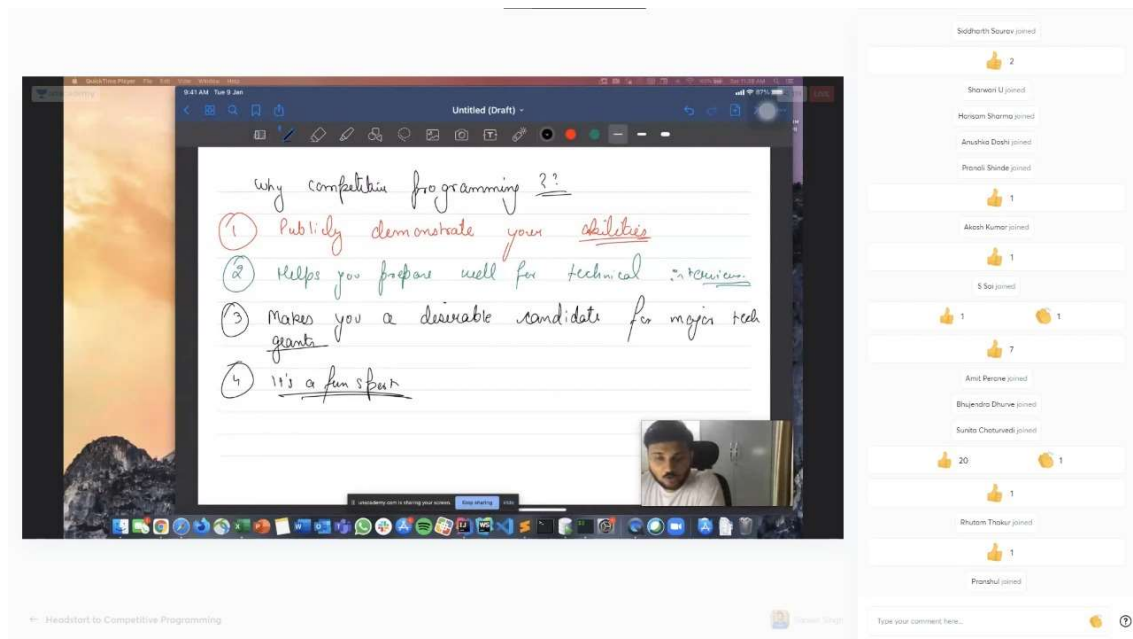 QuickTime Player File Edit View Window Help
9:41 AM Tue 9 Jan
87%
Untitled (Draft)
Why competitive programming ??
1 Publicly demonstrate your abilities
2 Helps you prepare well for technical interviews.
3 Makes you a desirable candidate for major tech
geants
4 It's a fun sport
unacademy.com is sharing your screen. Stop sharing Hide
Headstart to Competitive Programming
Siddharth Saurav joined
2
Sharwari U joined
Harisam Sharma joined
Anushka Doshi joined
Pranali Shinde joined
1
Akash Kumar joined
1
S Sai joined
1 1
7
Amit Perane joined
Bhujendra Dhurve joined
Sunita Chaturvedi joined
20 1
1
Rhutam Thakur joined
1
Pranshul joined
Type your comment here...